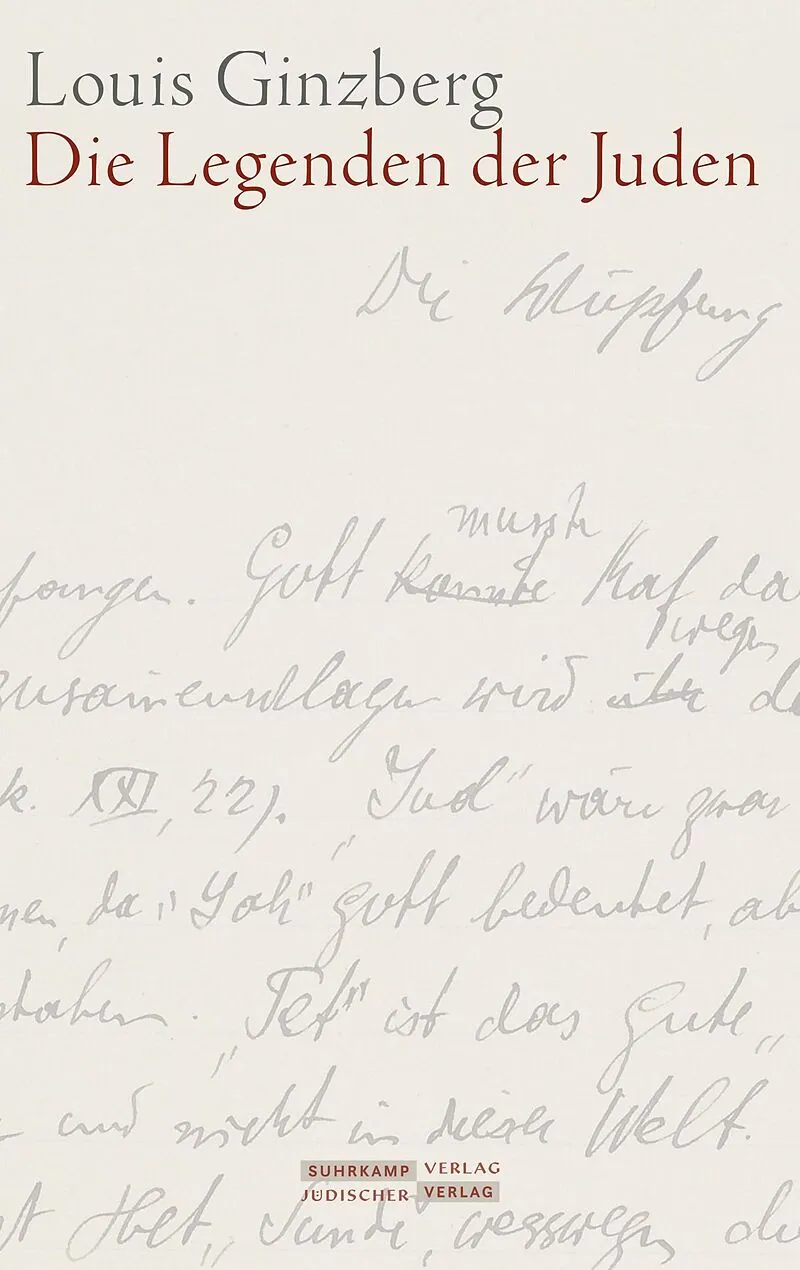 Louis Ginzberg
Die Legenden der Juden
Die Schöpfung
musste
fangen. Gott konnte Kaf da
wegen
zusammenschlagen wird über de
k. XXI, 22). „Jud" wäre zwar
nen, da „Yah" Gott bedeutet, ab
staben. „Tet" ist das Gute„
und nicht in dieser Welt.
SUHRKAMP VERLAG
JÜDISCHER VERLAG
t Het„ Sünde", wesswegen die